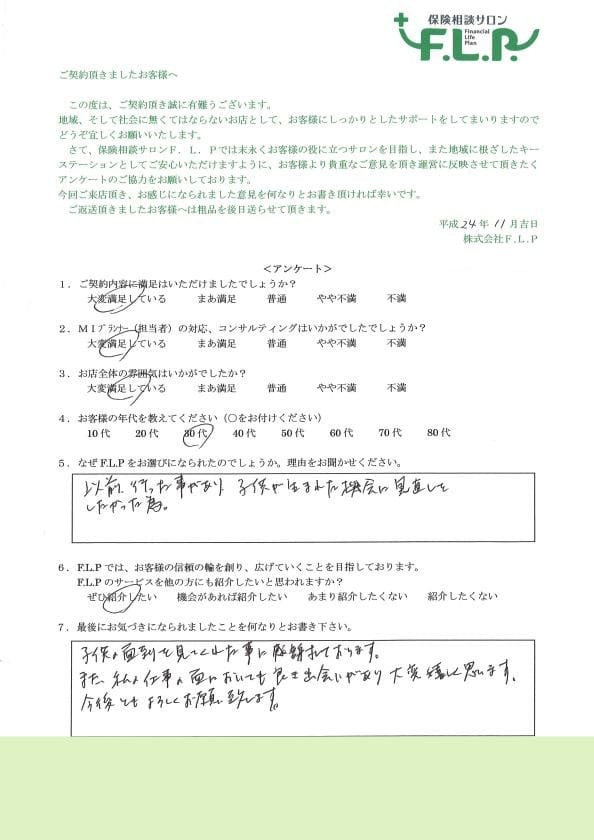 保険相談サロン
F.L.P.
Financial
Life
Plan
ご契約頂きましたお客様へ
この度は、ご契約頂き誠に有難うございます。
地域、そして社会に無くてはならないお店として、お客様にしっかりとしたサポートをしてまいりますので
どうぞ宜しくお願いいたします。
さて、保険相談サロンＦ．Ｌ．Ｐでは末永くお客様の役に立つサロンを目指し、また地域に根ざしたキー
ステーションとしてご安心いただけますように、お客様より貴重なご意見を頂き運営に反映させて頂きたく
アンケートのご協力をお願いしております。
今回ご来店頂き、お感じになられました意見を何なりとお書き頂ければ幸いです。
ご返送頂きましたお客様へは粗品を後日送らせて頂きます。
平成 24 年 11 月吉日
株式会社F.L.P
＜アンケート＞
１．ご契約内容に満足はいただけましたでしょうか？
大変満足している まあ満足 普通 やや不満 不満
２．ＭＩﾌﾟﾗﾝﾅｰ（担当者）の対応、コンサルティングはいかがでしたでしょうか？
大変満足している まあ満足 普通 やや不満 不満
３．お店全体の雰囲気はいかがでしたか？
大変満足している まあ満足 普通 やや不満 不満
４．お客様の年代を教えてください（〇をお付けください）
10代 20代 30代 40代 50代 60代 70代 80代
５．なぜF.L.Pをお選びになられたのでしょうか。理由をお聞かせください。
以前、行った事があり、子供が生まれた機会に見直しを
したかった為。
６．F.L.Pでは、お客様の信頼の輪を創り、広げていくことを目指しております。
F.L.Pのサービスを他の方にも紹介したいと思われますか？
ぜひ紹介したい 機会があれば紹介したい あまり紹介したくない 紹介したくない
７．最後にお気づきになられましたことを何なりとお書き下さい。
子供の面倒を見てくれた事に感謝しております。
また、私の仕事の面においても良き出会いがあり大変嬉しく思います。
今後ともよろしくお願い致します。